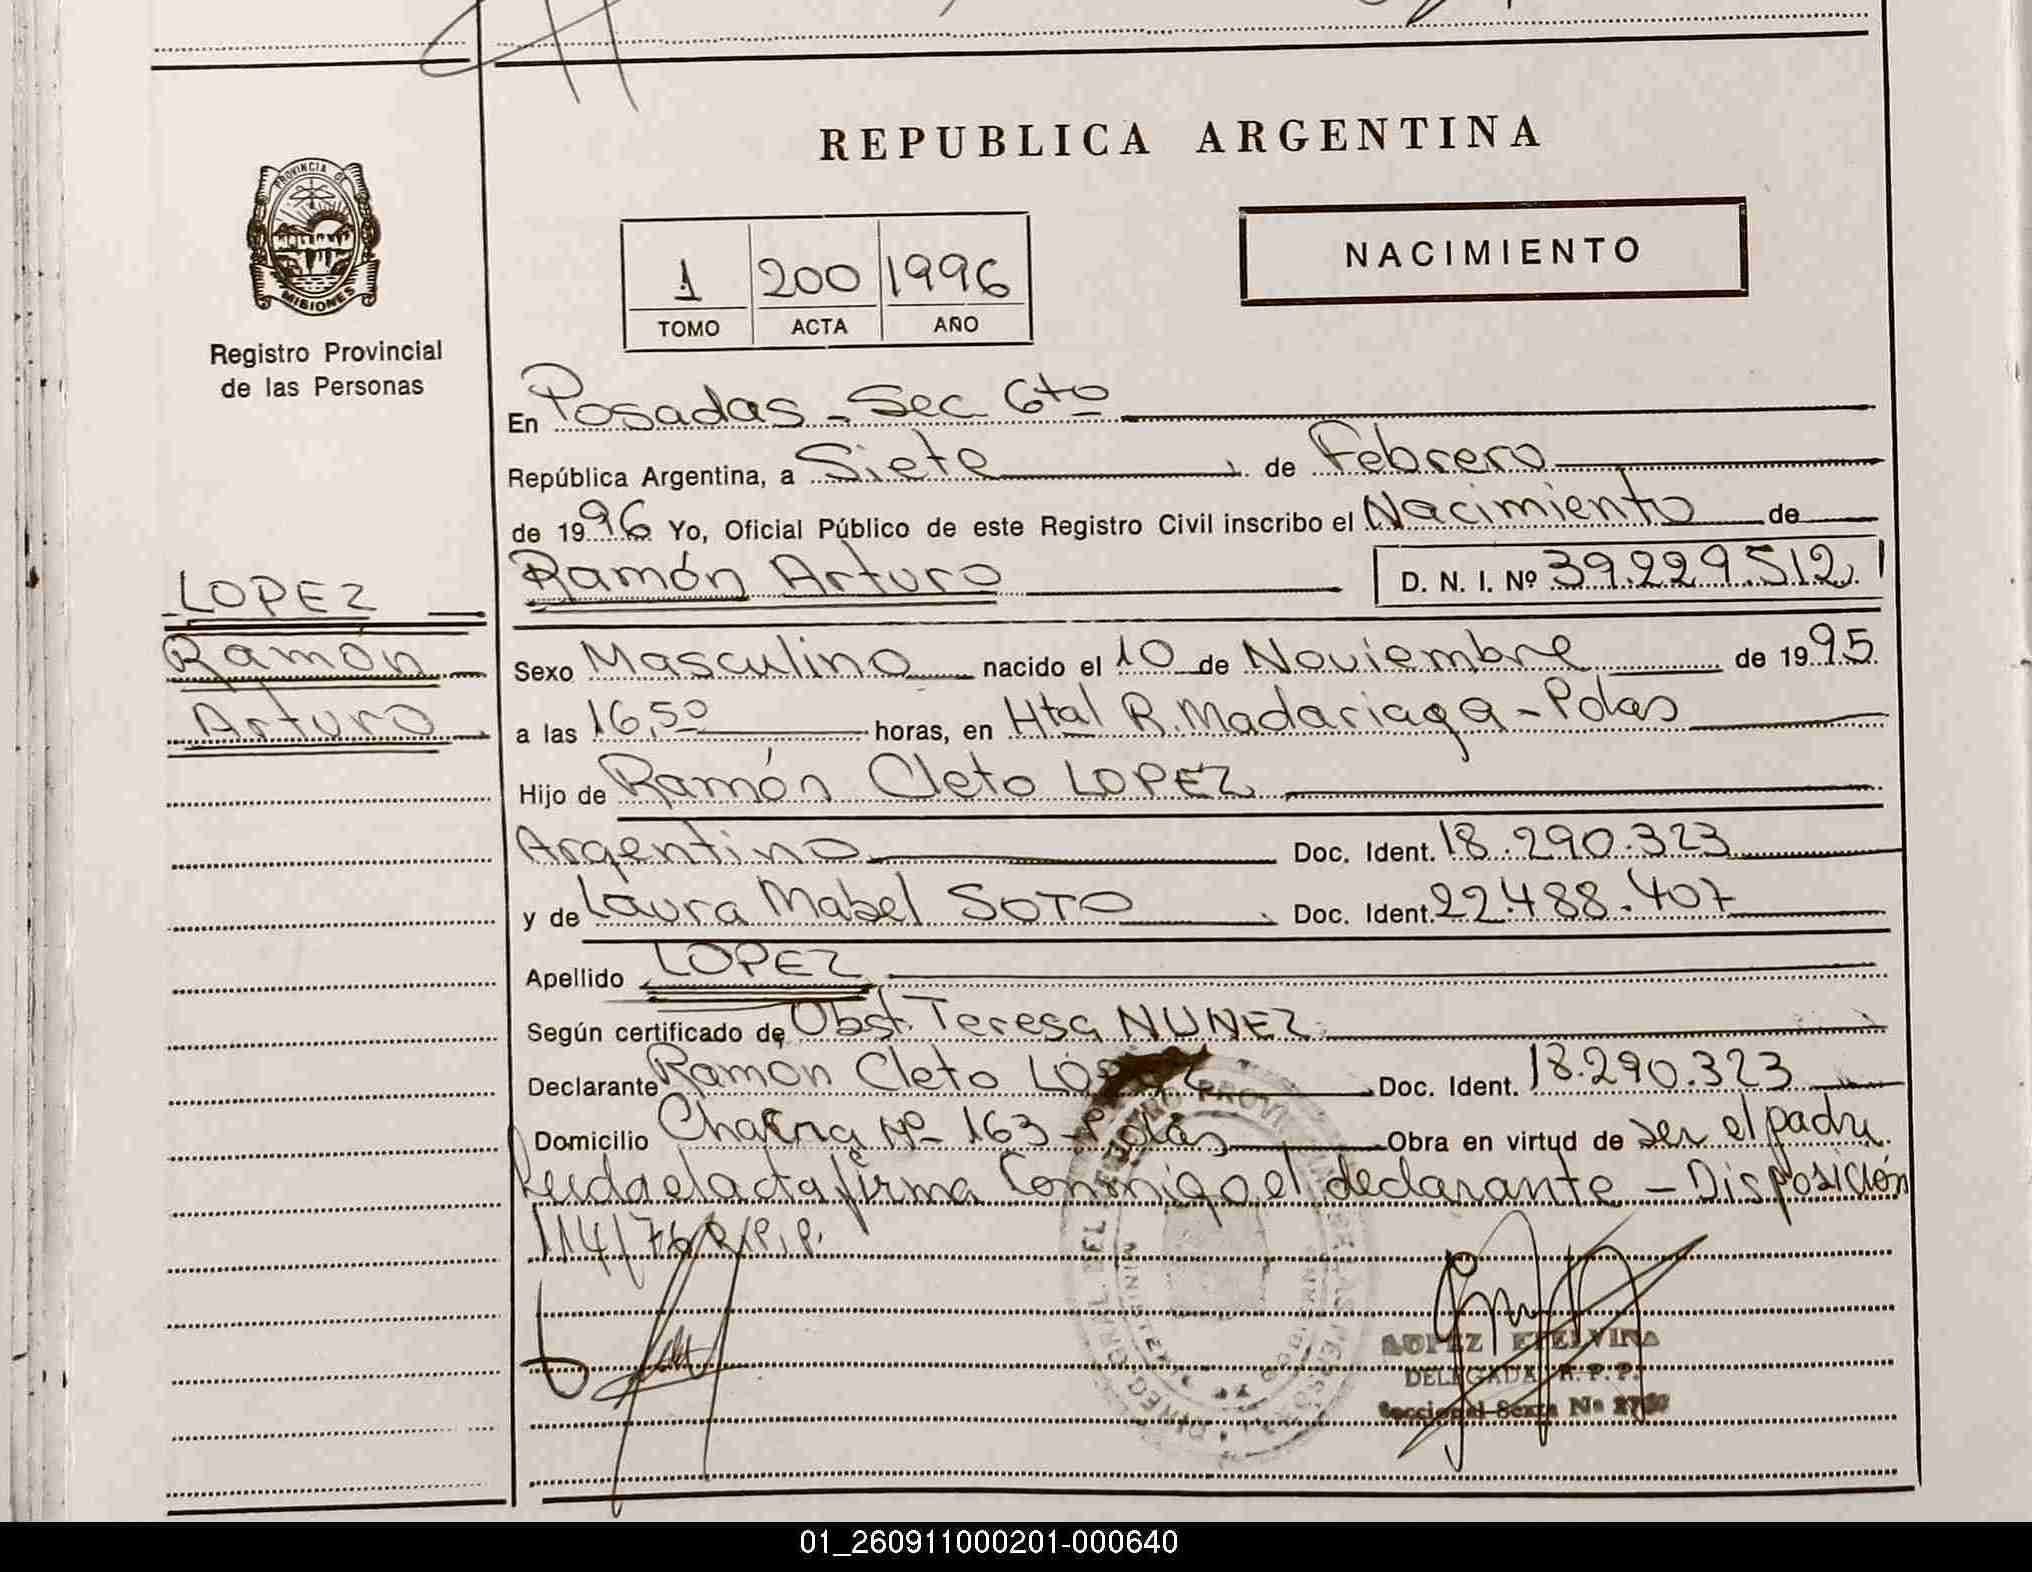 REPUBLICA ARGENTINA
PROVINCIA DE
MISIONES
Registro Provincial
de las Personas
NACIMIENTO
1 200 1996
TOMO ACTA AÑO
En Posadas - Sec 6to
República Argentina, a Siete de Febrero
de 1996 Yo, Oficial Público de este Registro Civil inscribo el Nacimiento de
Ramón Arturo D. N. I. Nº 39.229.512
LOPEZ
Ramón
Arturo
Sexo Masculino nacido el 10 de Noviembre de 1995
a las 16,50 horas, en Htal R. Madariaga - Pdas
Hijo de Ramón Cleto LOPEZ
Argentino Doc. Ident. 18.290.323
y de Laura Mabel SOTO Doc. Ident. 22.488.407
Apellido LOPEZ
Según certificado de Obst. Teresa NUNEZ
Declarante Ramon Cleto LOPEZ Doc. Ident. 18.290.323
Domicilio Chacra Nº 163 - Pdas Obra en virtud de ser el padre
Leida el acta firma Conmigo el declarante - Disposición
114/76 R.P.P.
LOPEZ ETELVINA
DELEGADA R. P. P.
Seccional Sexta No
01_260911000201-000640